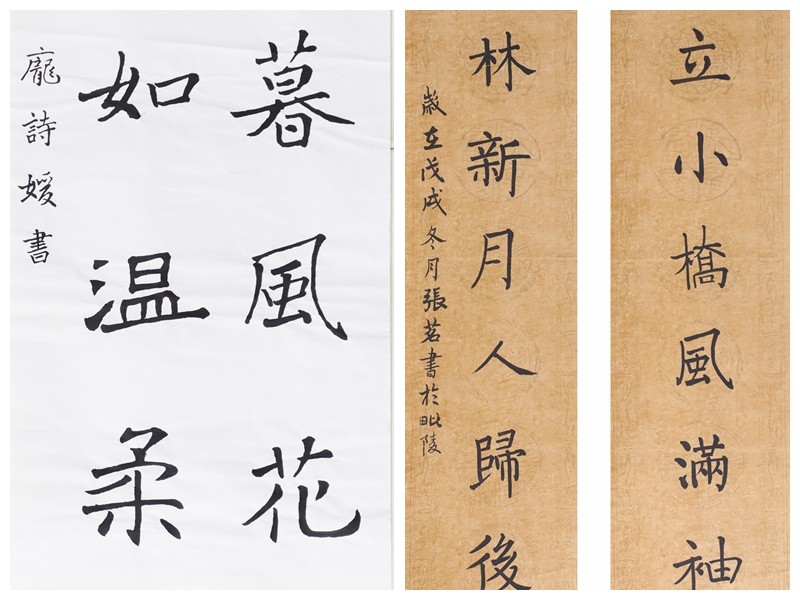 暮風花
如温柔
龐詩媛書
立小橋風滿袖
林新月人歸後
歲在戊戌冬月張茗書於毗陵